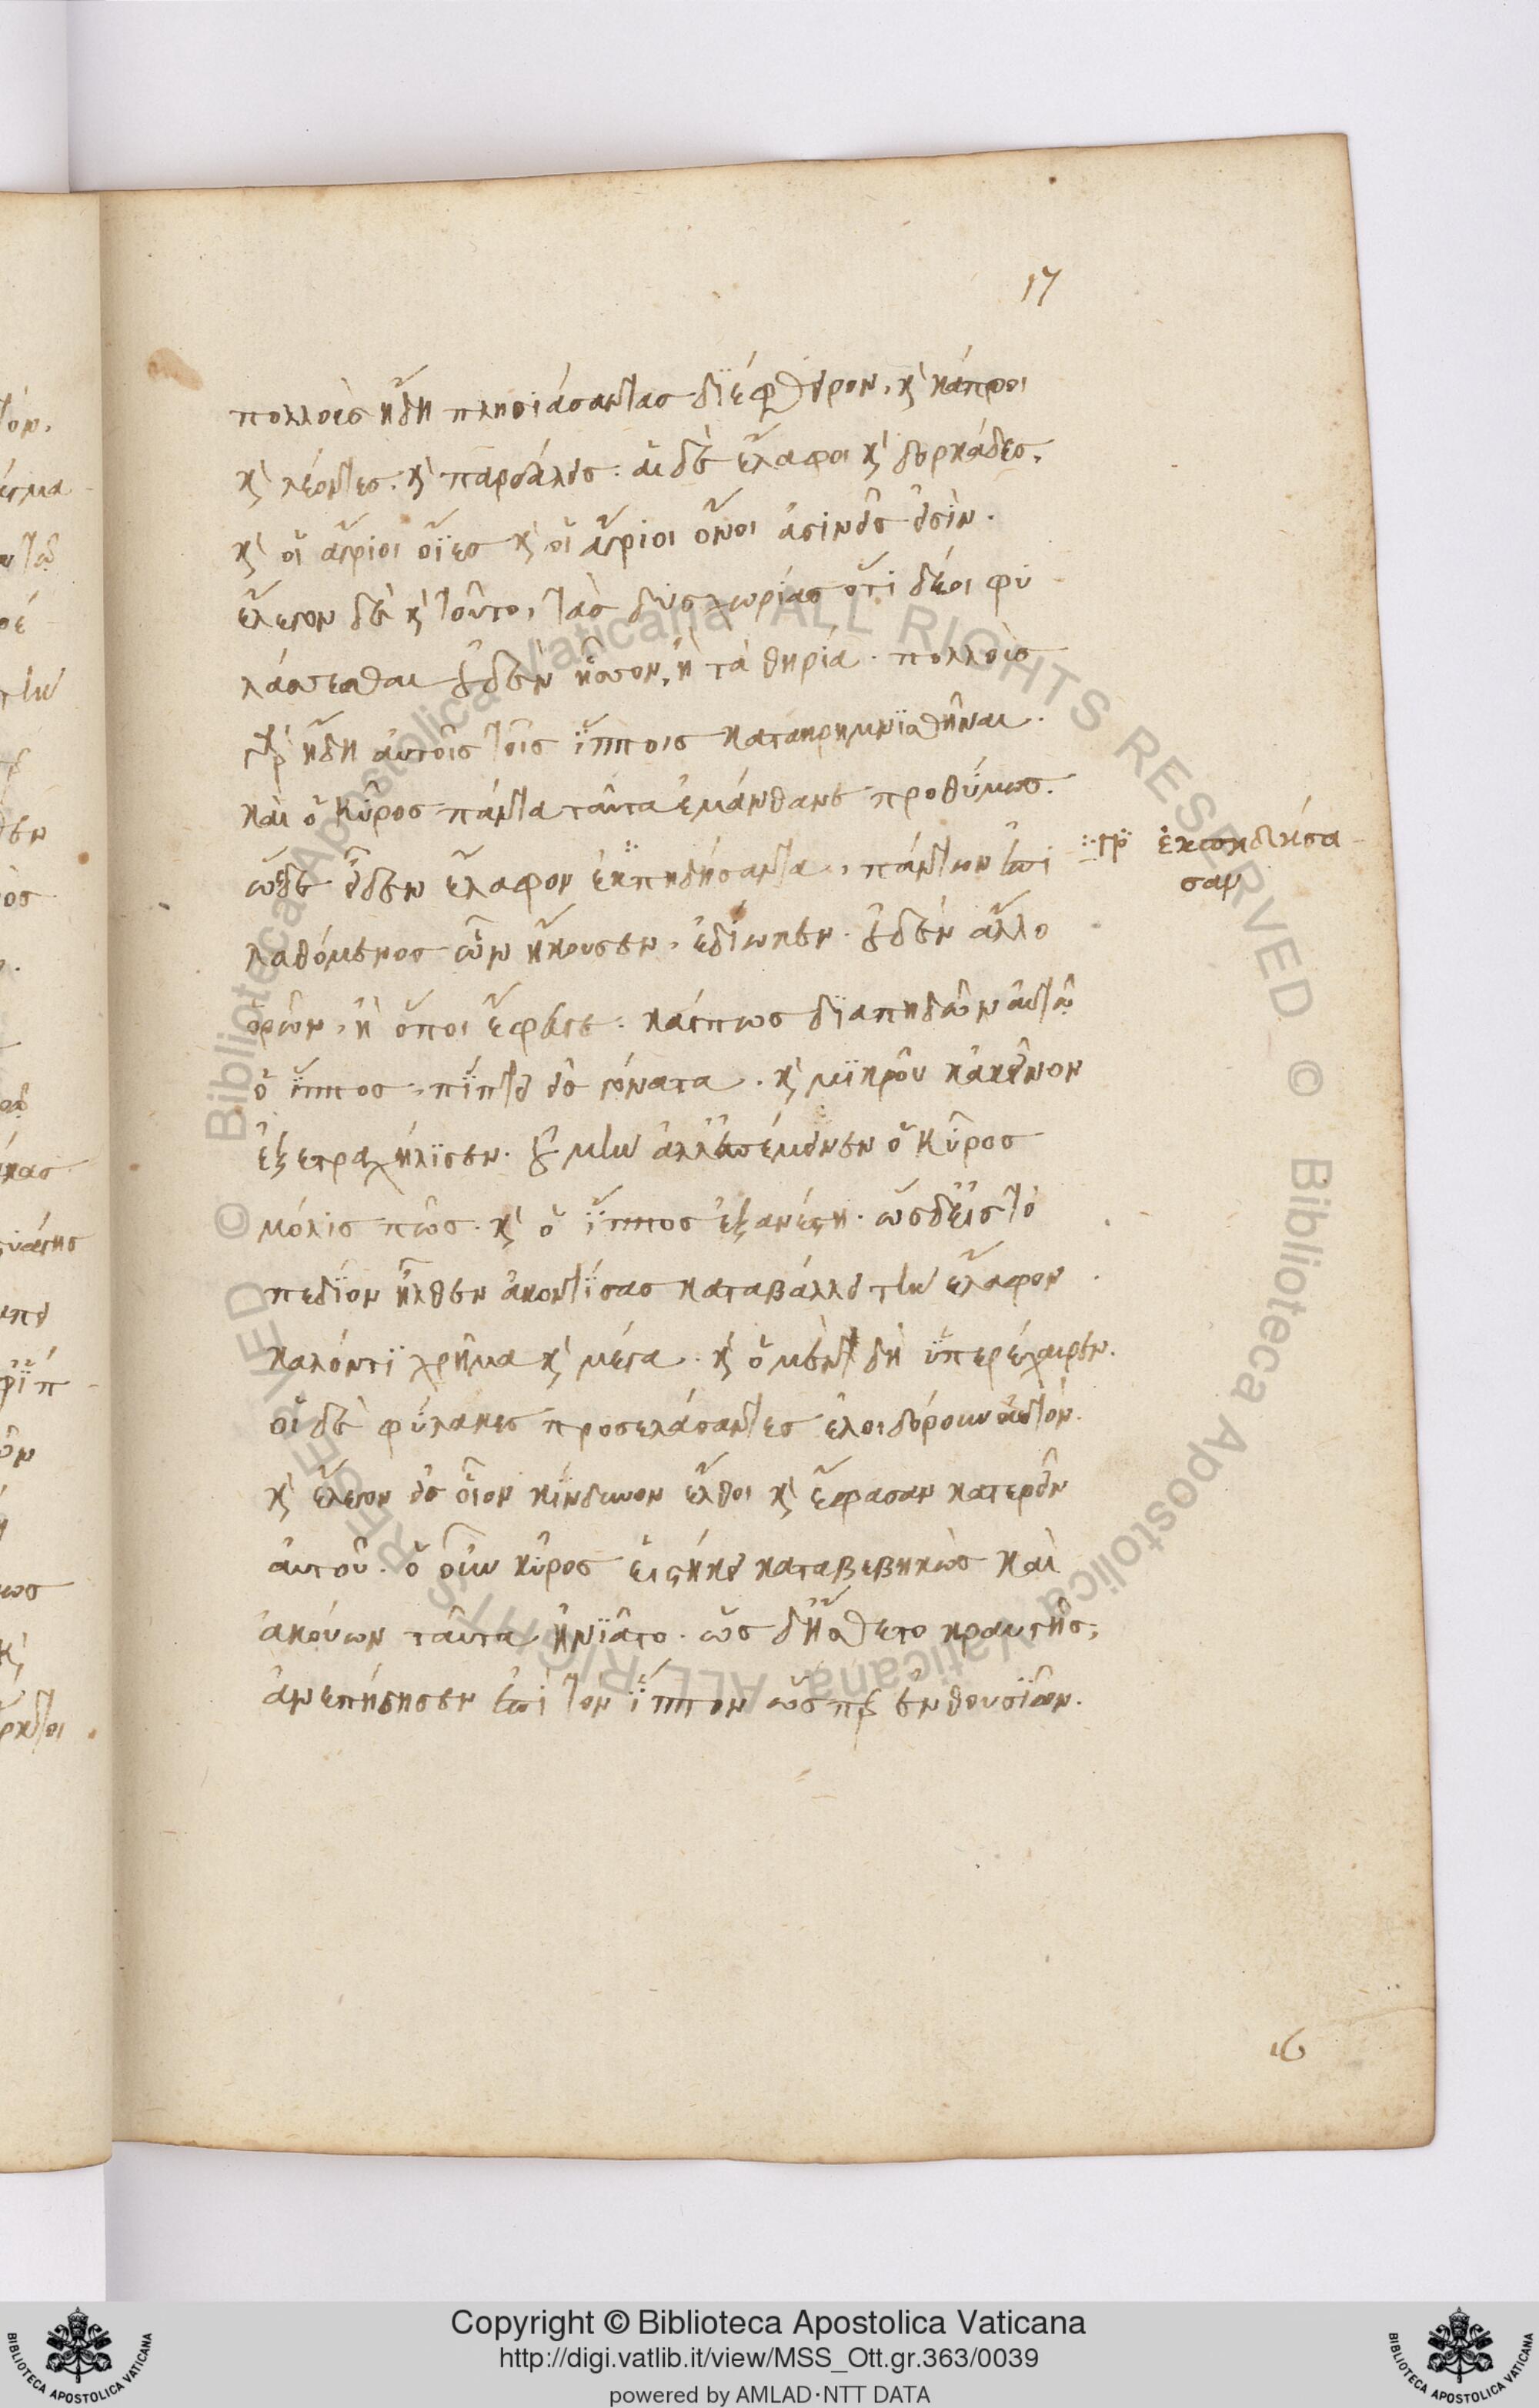 17
πολλοὺς ἤδη πλησιάσαντας διέφθειρον, κ̀ κάπροι
κ̀ λέοντες. κ̀ παρδάλεις. αἱ δὲ ἔλαφοι κ̀ δορκάδες,
κ̀ οἱ ἄγριοι οἴϊες κ̀ οἱ ἄγριοι ὄνοι ἀσινεῖς εἰσὶν.
ἔλεγον δὲ κ̀ τοῦτο, τὰς δυσχωρίας ὅτι δέοι φυ
λάττεσθαι οὐδὲν ἧττον, ἢ τὰ θηρία. πολλοὺς
γὰρ ἤδη αὐτοῖς τοῖς ἵπποις κατακρημνισθῆναι.
καὶ ὁ Κῦρος πάντα ταῦτα ἐμάνθανε προθύμως.
ὡς δὲ εἶδεν ἔλαφον ἐκπηδήσαντα, πάντων ἐπι
λαθόμενος ὧν ἤκουσεν, ἐδίωκεν. οὐδὲν ἄλλο
ὁρῶν, ἢ ὅποι ἔφευγε. καί πως διαπηδῶν αὐτῶ
ὁ ἵππος, πίπτει εἰς γόνατα. κ̀ μικροῦ κἀκεῖνον
ἐξετραχήλισεν. οὐ μὴν ἀλλ' ἐπέμεινεν ὁ Κῦρος
μόλις πως. κ̀ ὁ ἵππος ἐξανέστη. ὡς δ' εἰς τὸ
πεδίον ἦλθεν ἀκοντίσας καταβάλλει τὴν ἔλαφον
καλόν τι χρῆμα κ̀ μέγα. κ̀ ὁ μὲν δὴ ὑπερέχαιρεν.
οἱ δὲ φύλακες προσελάσαντες ἐλοιδόρουν αὐτόν.
κ̀ ἔλεγον εἰς οἷον κίνδυνον ἔλθοι κ̀ ἔφασαν κατερεῖν
αὐτοῦ. ὁ οὖν κῦρος εἱστήκει καταβεβηκὼς καὶ
ἀκούων ταῦτα ἠνιᾶτο. ὡς δ' ᾔσθετο κραυγῆς,
ἀνεπήδησεν ἐπὶ τὸν ἵππον ὥσπερ ἐνθουσιῶν.
ἐκπηδήσα
σαν
16
Copyright © Biblioteca Apostolica Vaticana
http://digi.vatlib.it/view/MSS_Ott.gr.363/0039
powered by AMLAD·NTT DATA
BIBLIOTECA APOSTOLICA VATICANA
BIBLIOTECA APOSTOLICA VATICANA
© Biblioteca Apostolica Vaticana ALL RIGHTS RESERVED © Biblioteca Apostolica Vaticana ALL RIGHTS RESERVED